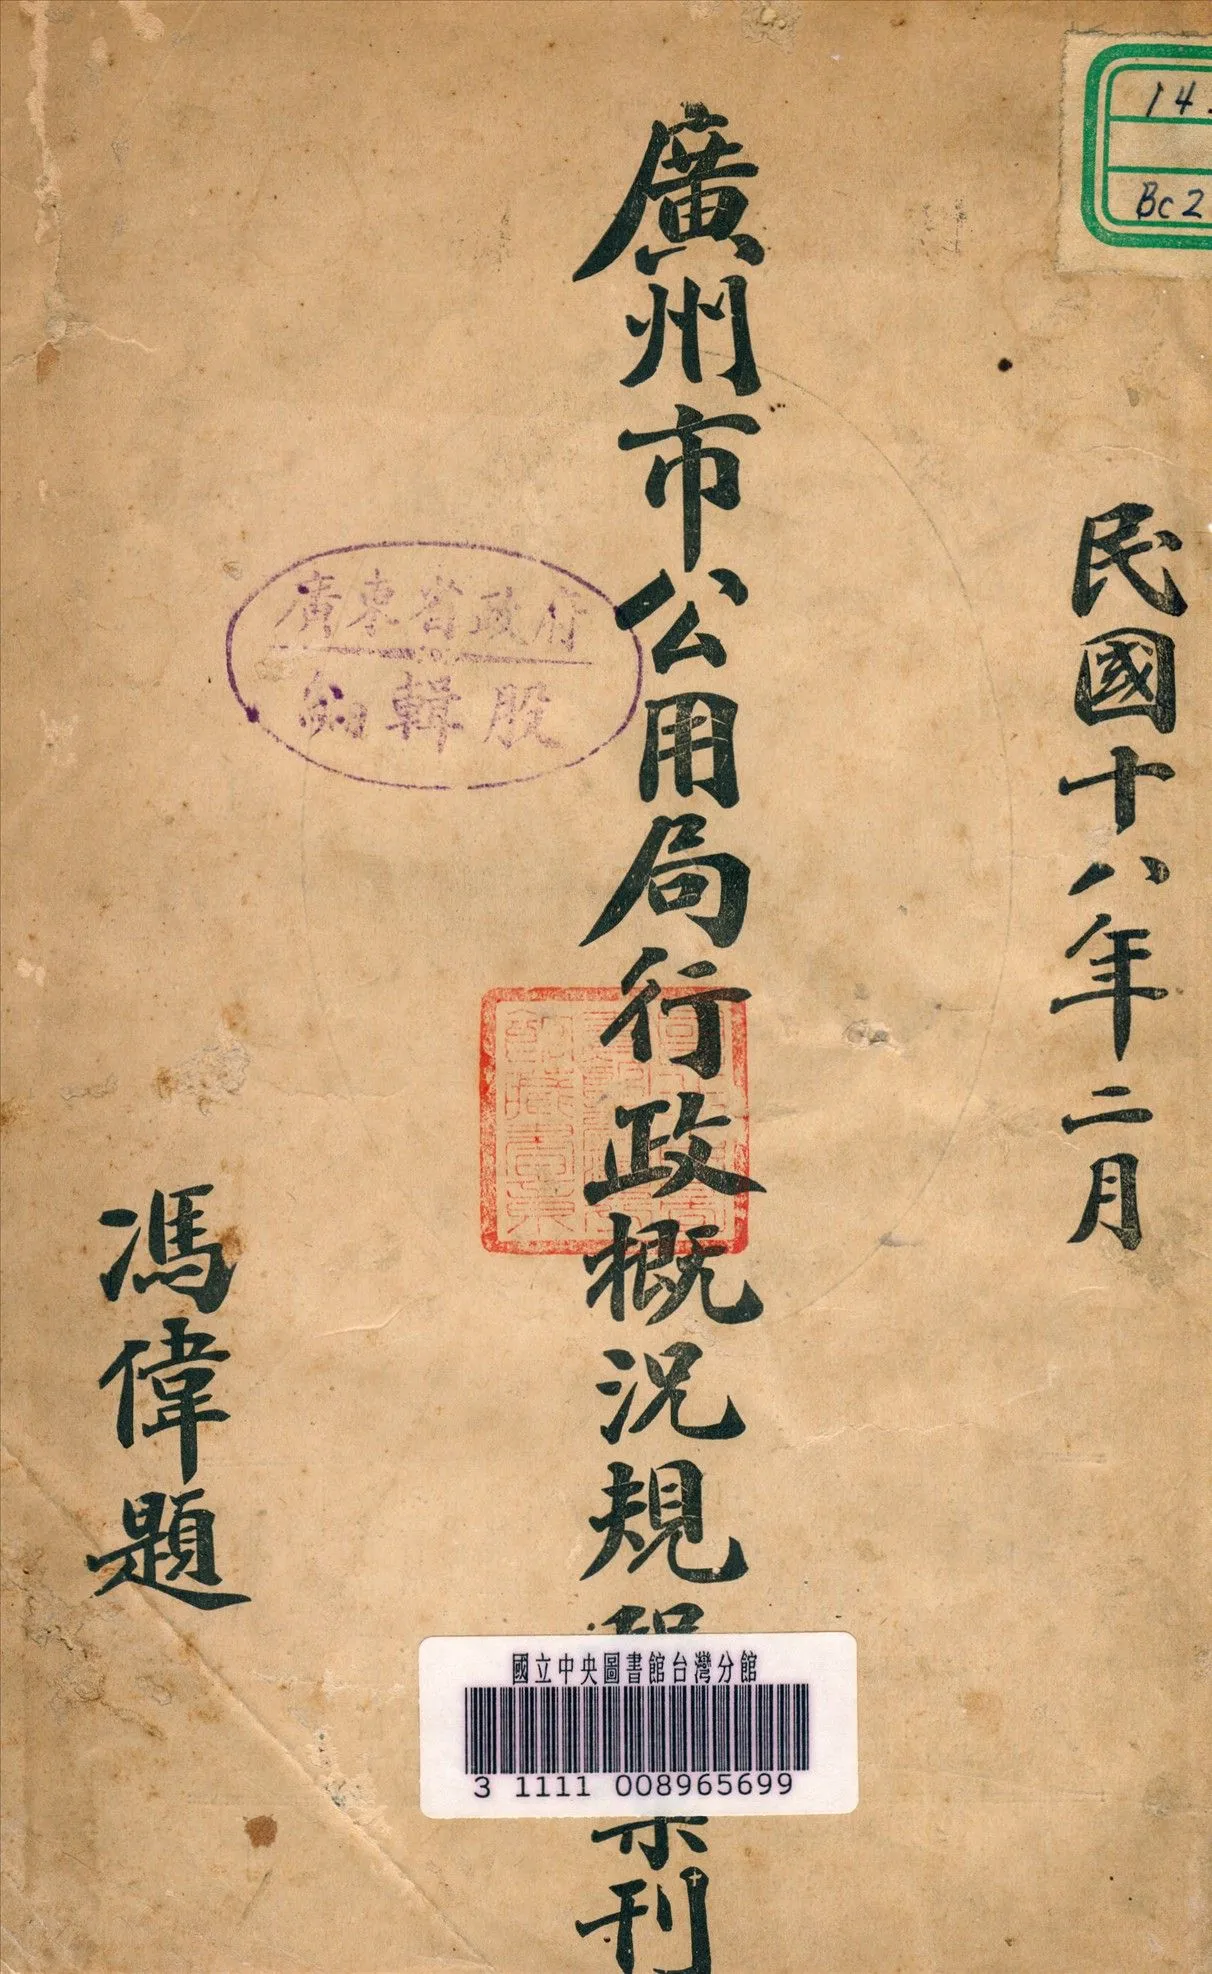 民國十八年二月
廣州市公用局行政概況規
刊
馮偉題
廣東省政府
編輯股
國立中央圖書館台灣分館
3 1111 008965699
14
Bc2